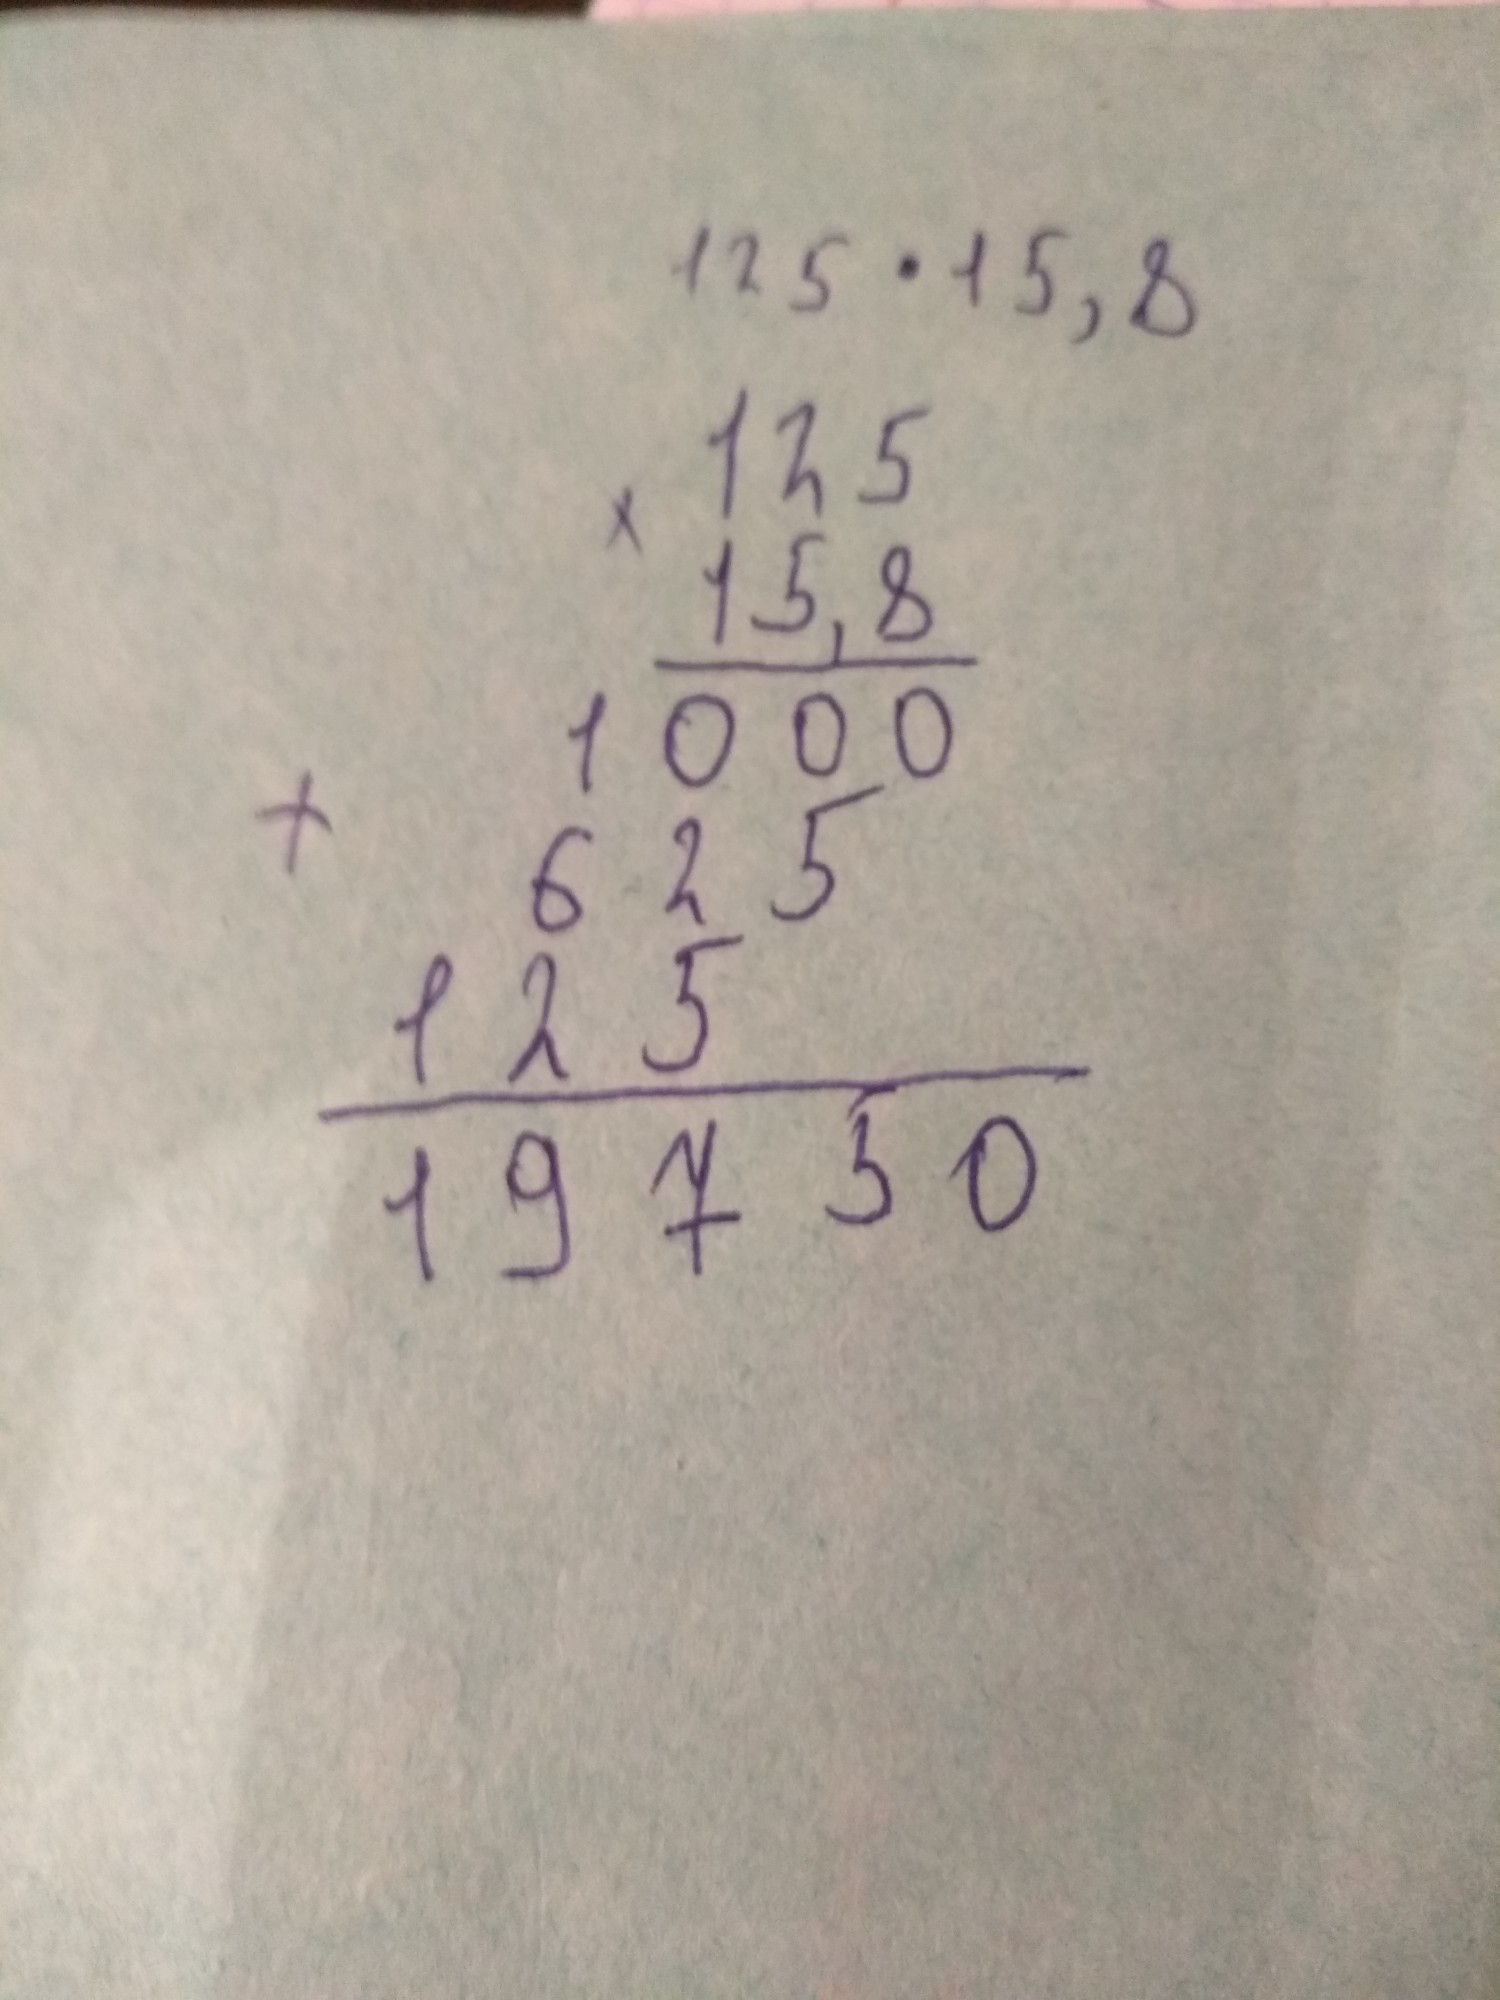 125 · 15,8
125
×
15,8
1000
+
625
125
19750